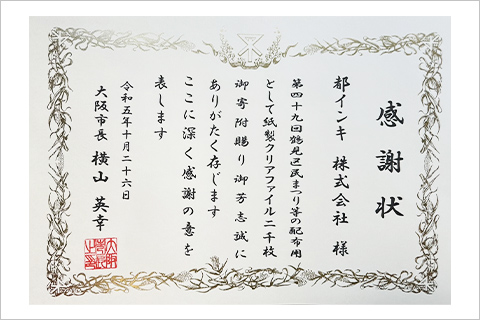 感謝状
都インキ 株式会社 様
第四十九回鶴見区民まつり等の配布用
として紙製クリアファイル二千枚
御寄附賜り御芳志誠に
ありがたく存じます
ここに深く感謝の意を
表します
令和五年十月二十六日
大阪市長 横山 英幸